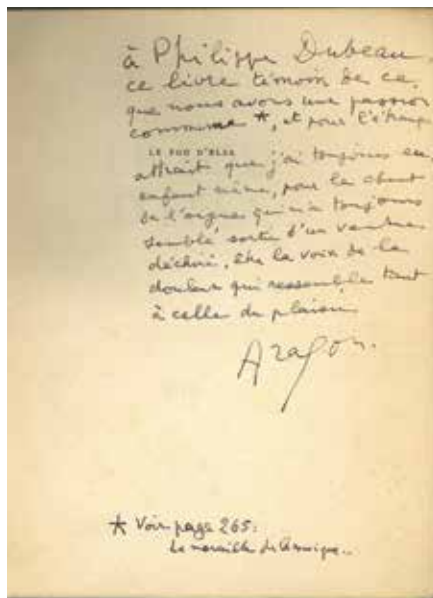 à Philippe Dubeau,
ce livre témoin de ce
que nous avons une passion
commune *, et pour l'étrange
LE FOU D'ELSA
attrait que j'ai toujours eu,
enfant même, pour le chant
de l'orgue qui m'a toujours
semblé sortir d'un ventre
déchiré, être la voix de la
douleur qui ressemble tant
à celle du plaisir
Aragon.
* Voir page 265:
La merveille de la musique..